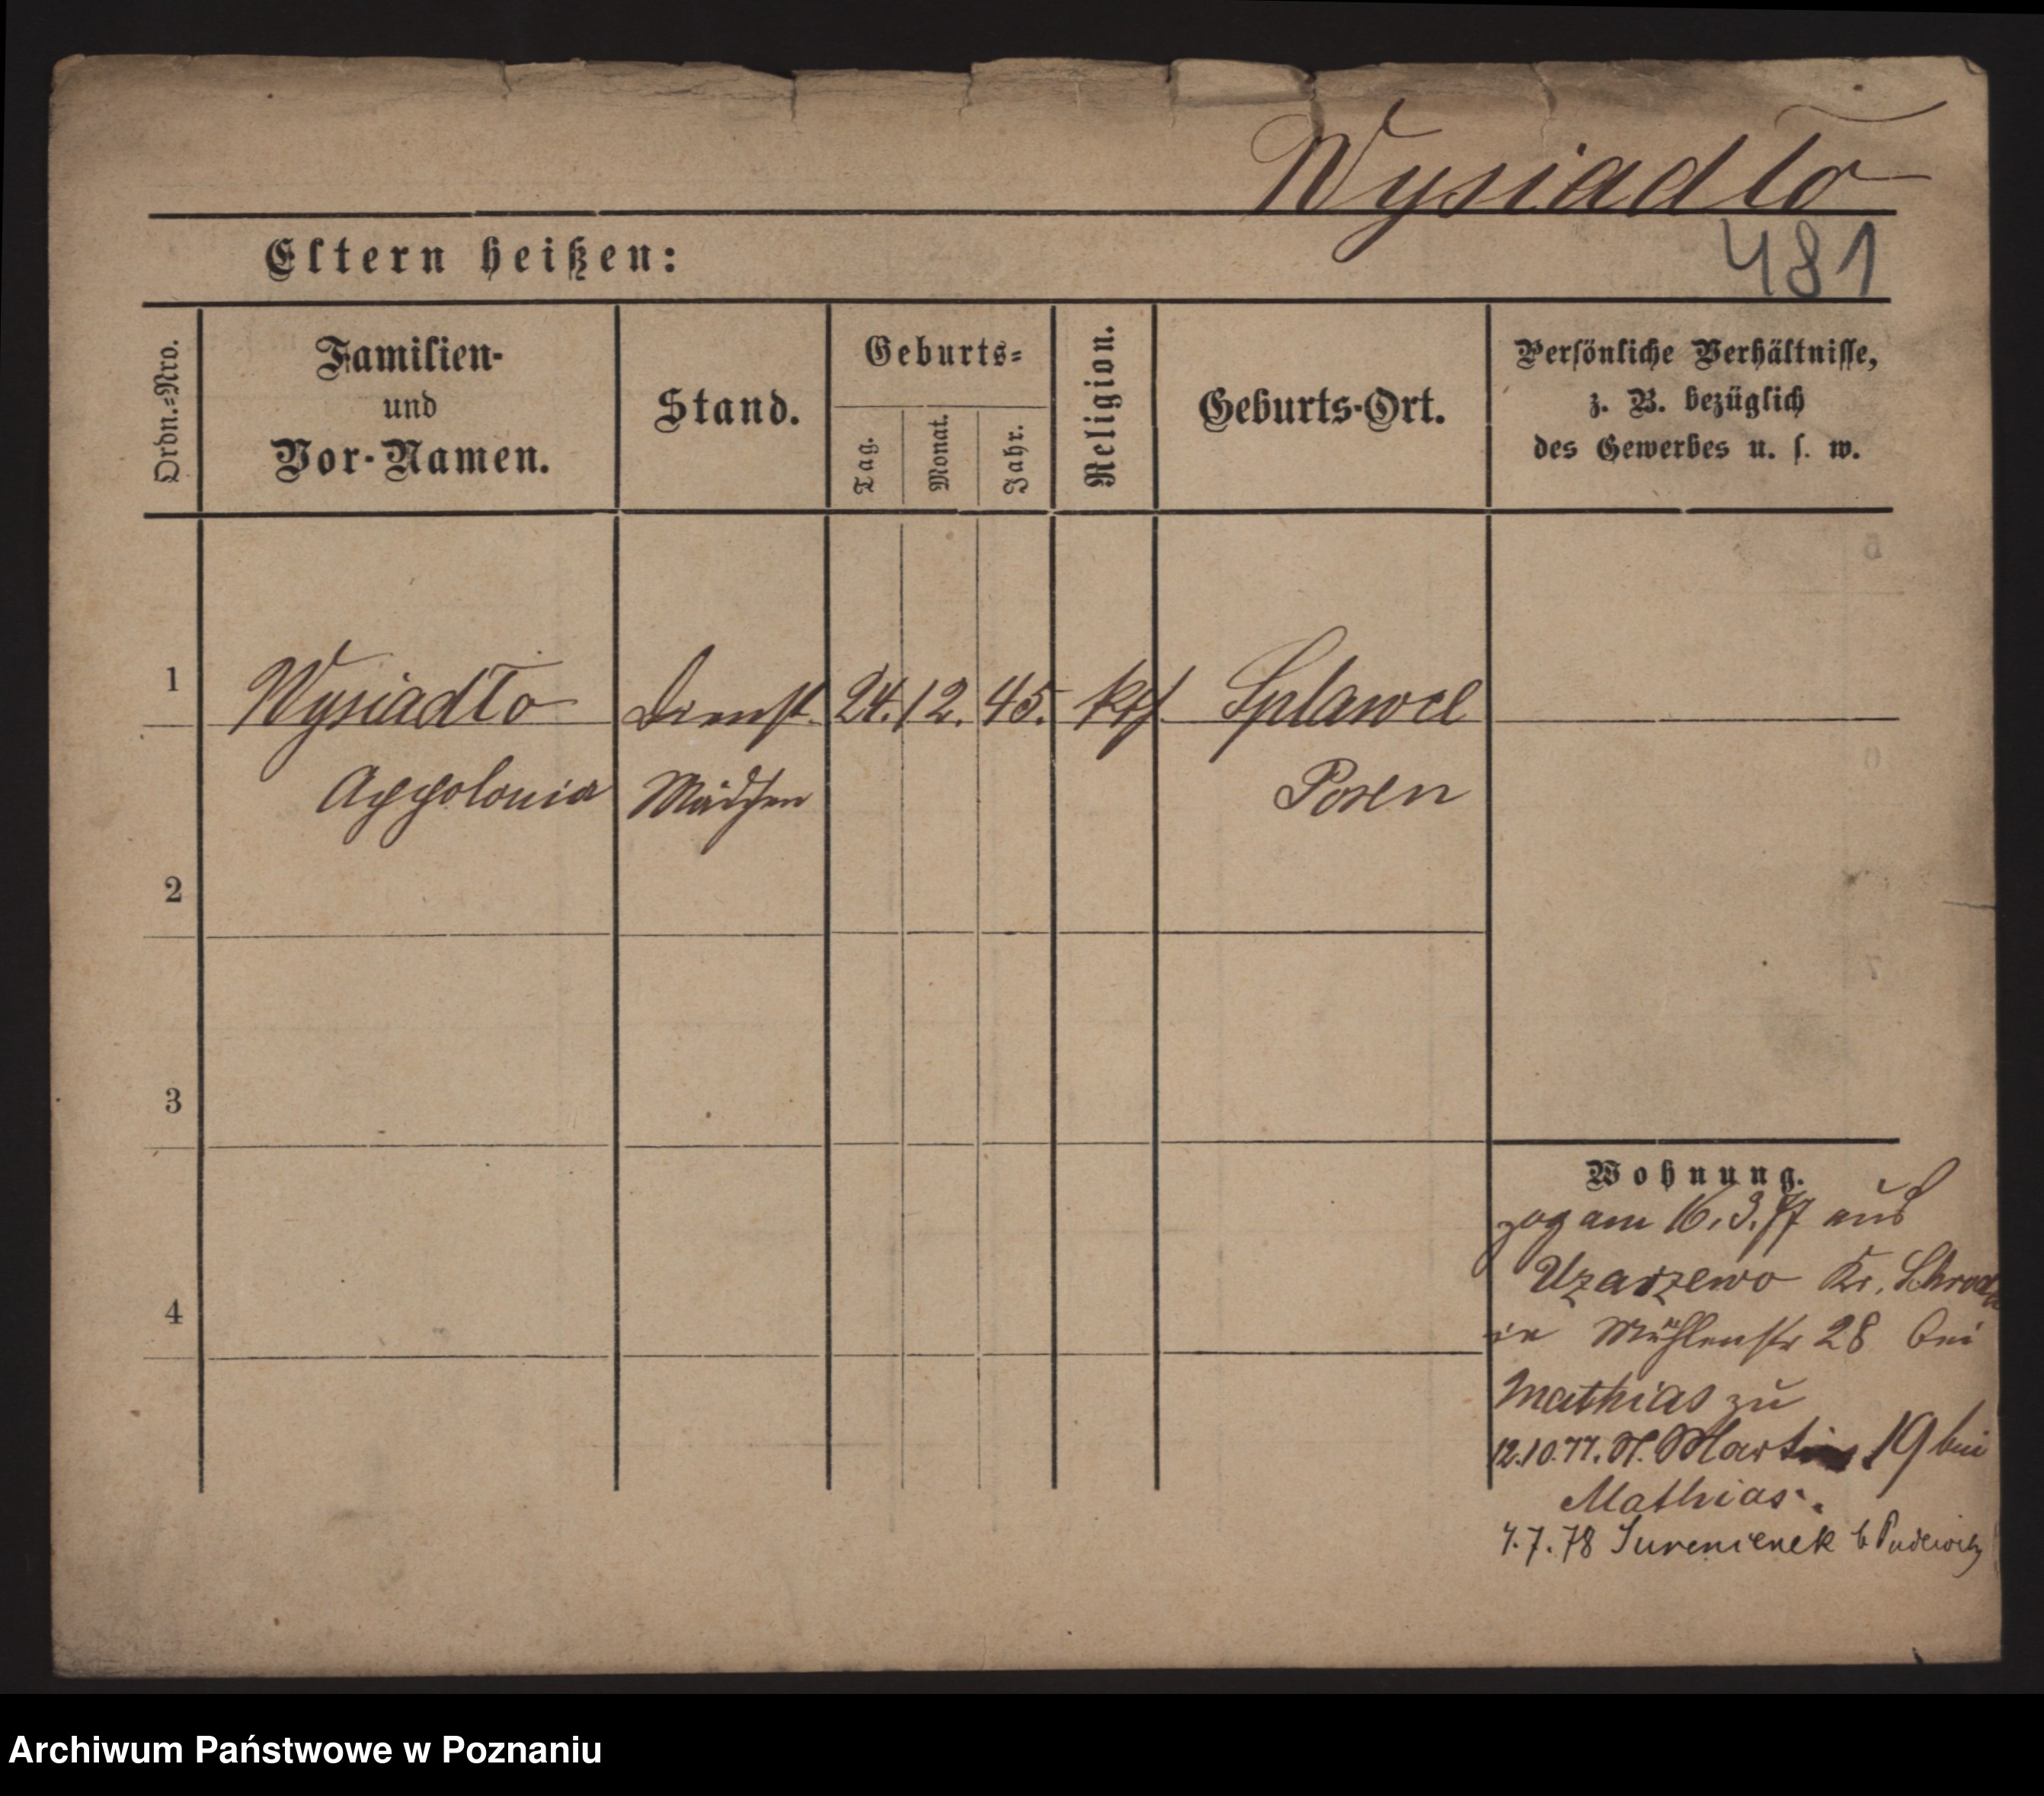 Wysiadło
481
Eltern heißen:
Ordn.=Nro.
Familien-
und
Vor-Namen.
Stand.
Geburts=
Tag.
Monat.
Jahr.
Religion.
Geburts-Ort.
Persönliche Verhältnisse,
z. B. bezüglich
des Gewerbes u. s. w.
1
Wysiadło Dienst 24. 12. 45. kth Splawce
Appolonia Mädchen Posen
2
3
4
Wohnung.
zog am 16. 3. 77 aus
Uzarzewo Kr. Schroda
in Mühlenstr 28 bei
Mathias zu
12.10.77. St. Martin 19 bei
Mathias.
4.7.78 b Pudewitz
Archiwum Państwowe w Poznaniu